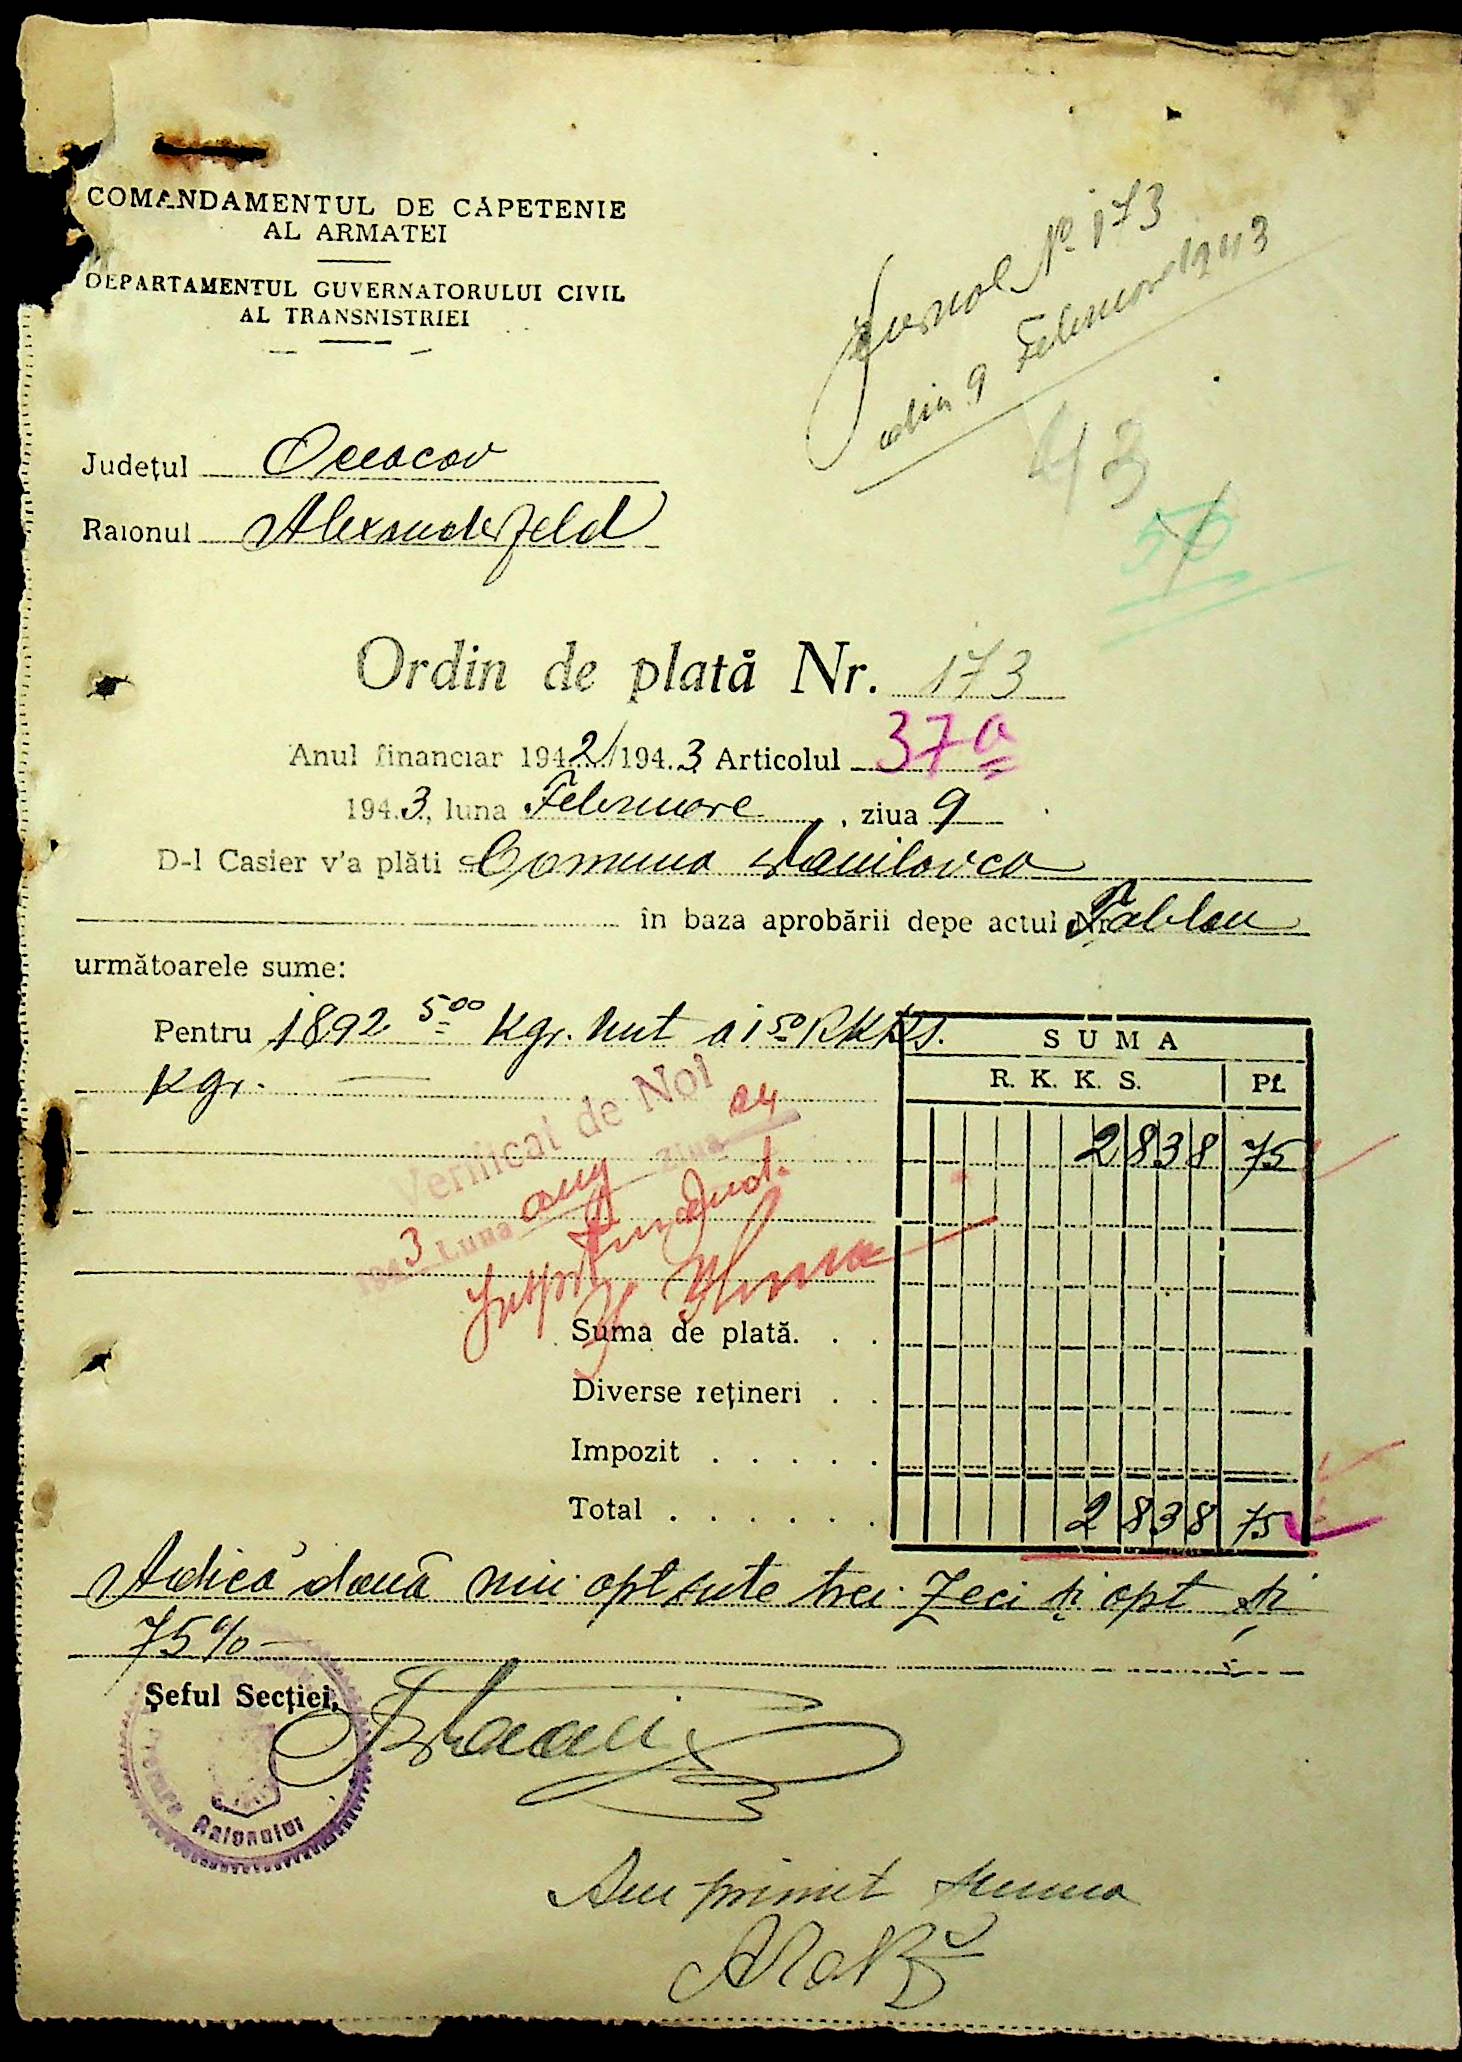 COMANDAMENTUL DE CAPETENIE
AL ARMATEI
DEPARTAMENTUL GUVERNATORULUI CIVIL
AL TRANSNISTRIEI
Jurnal Nº 173
din 9 Februarie 1943
43
50
Județul Oceacov
Raionul Alexanderfeld
Ordin de plată Nr. 173
Anul financiar 1942/1943 Articolul 37a
1943, luna Februarie, ziua 9
D-l Casier v'a plăti Comuna Danilovca
în baza aprobării depe actul Nr. Tablou
următoarele sume:
Pentru 1892 500 Kgr. Nut a 1 50 RKKS.
Kgr.
SUMA
R. K. K. S. Pf.
2838 75
Verificat de Noi
1943 Luna aug ziua 24
Suma de plată. . .
Diverse rețineri . .
Impozit . . . . .
Total . . . . . . 2838 75
Adică două mii opt sute trei zeci și opt și
75%
Șeful Secției,
Raionului
Am primit suma